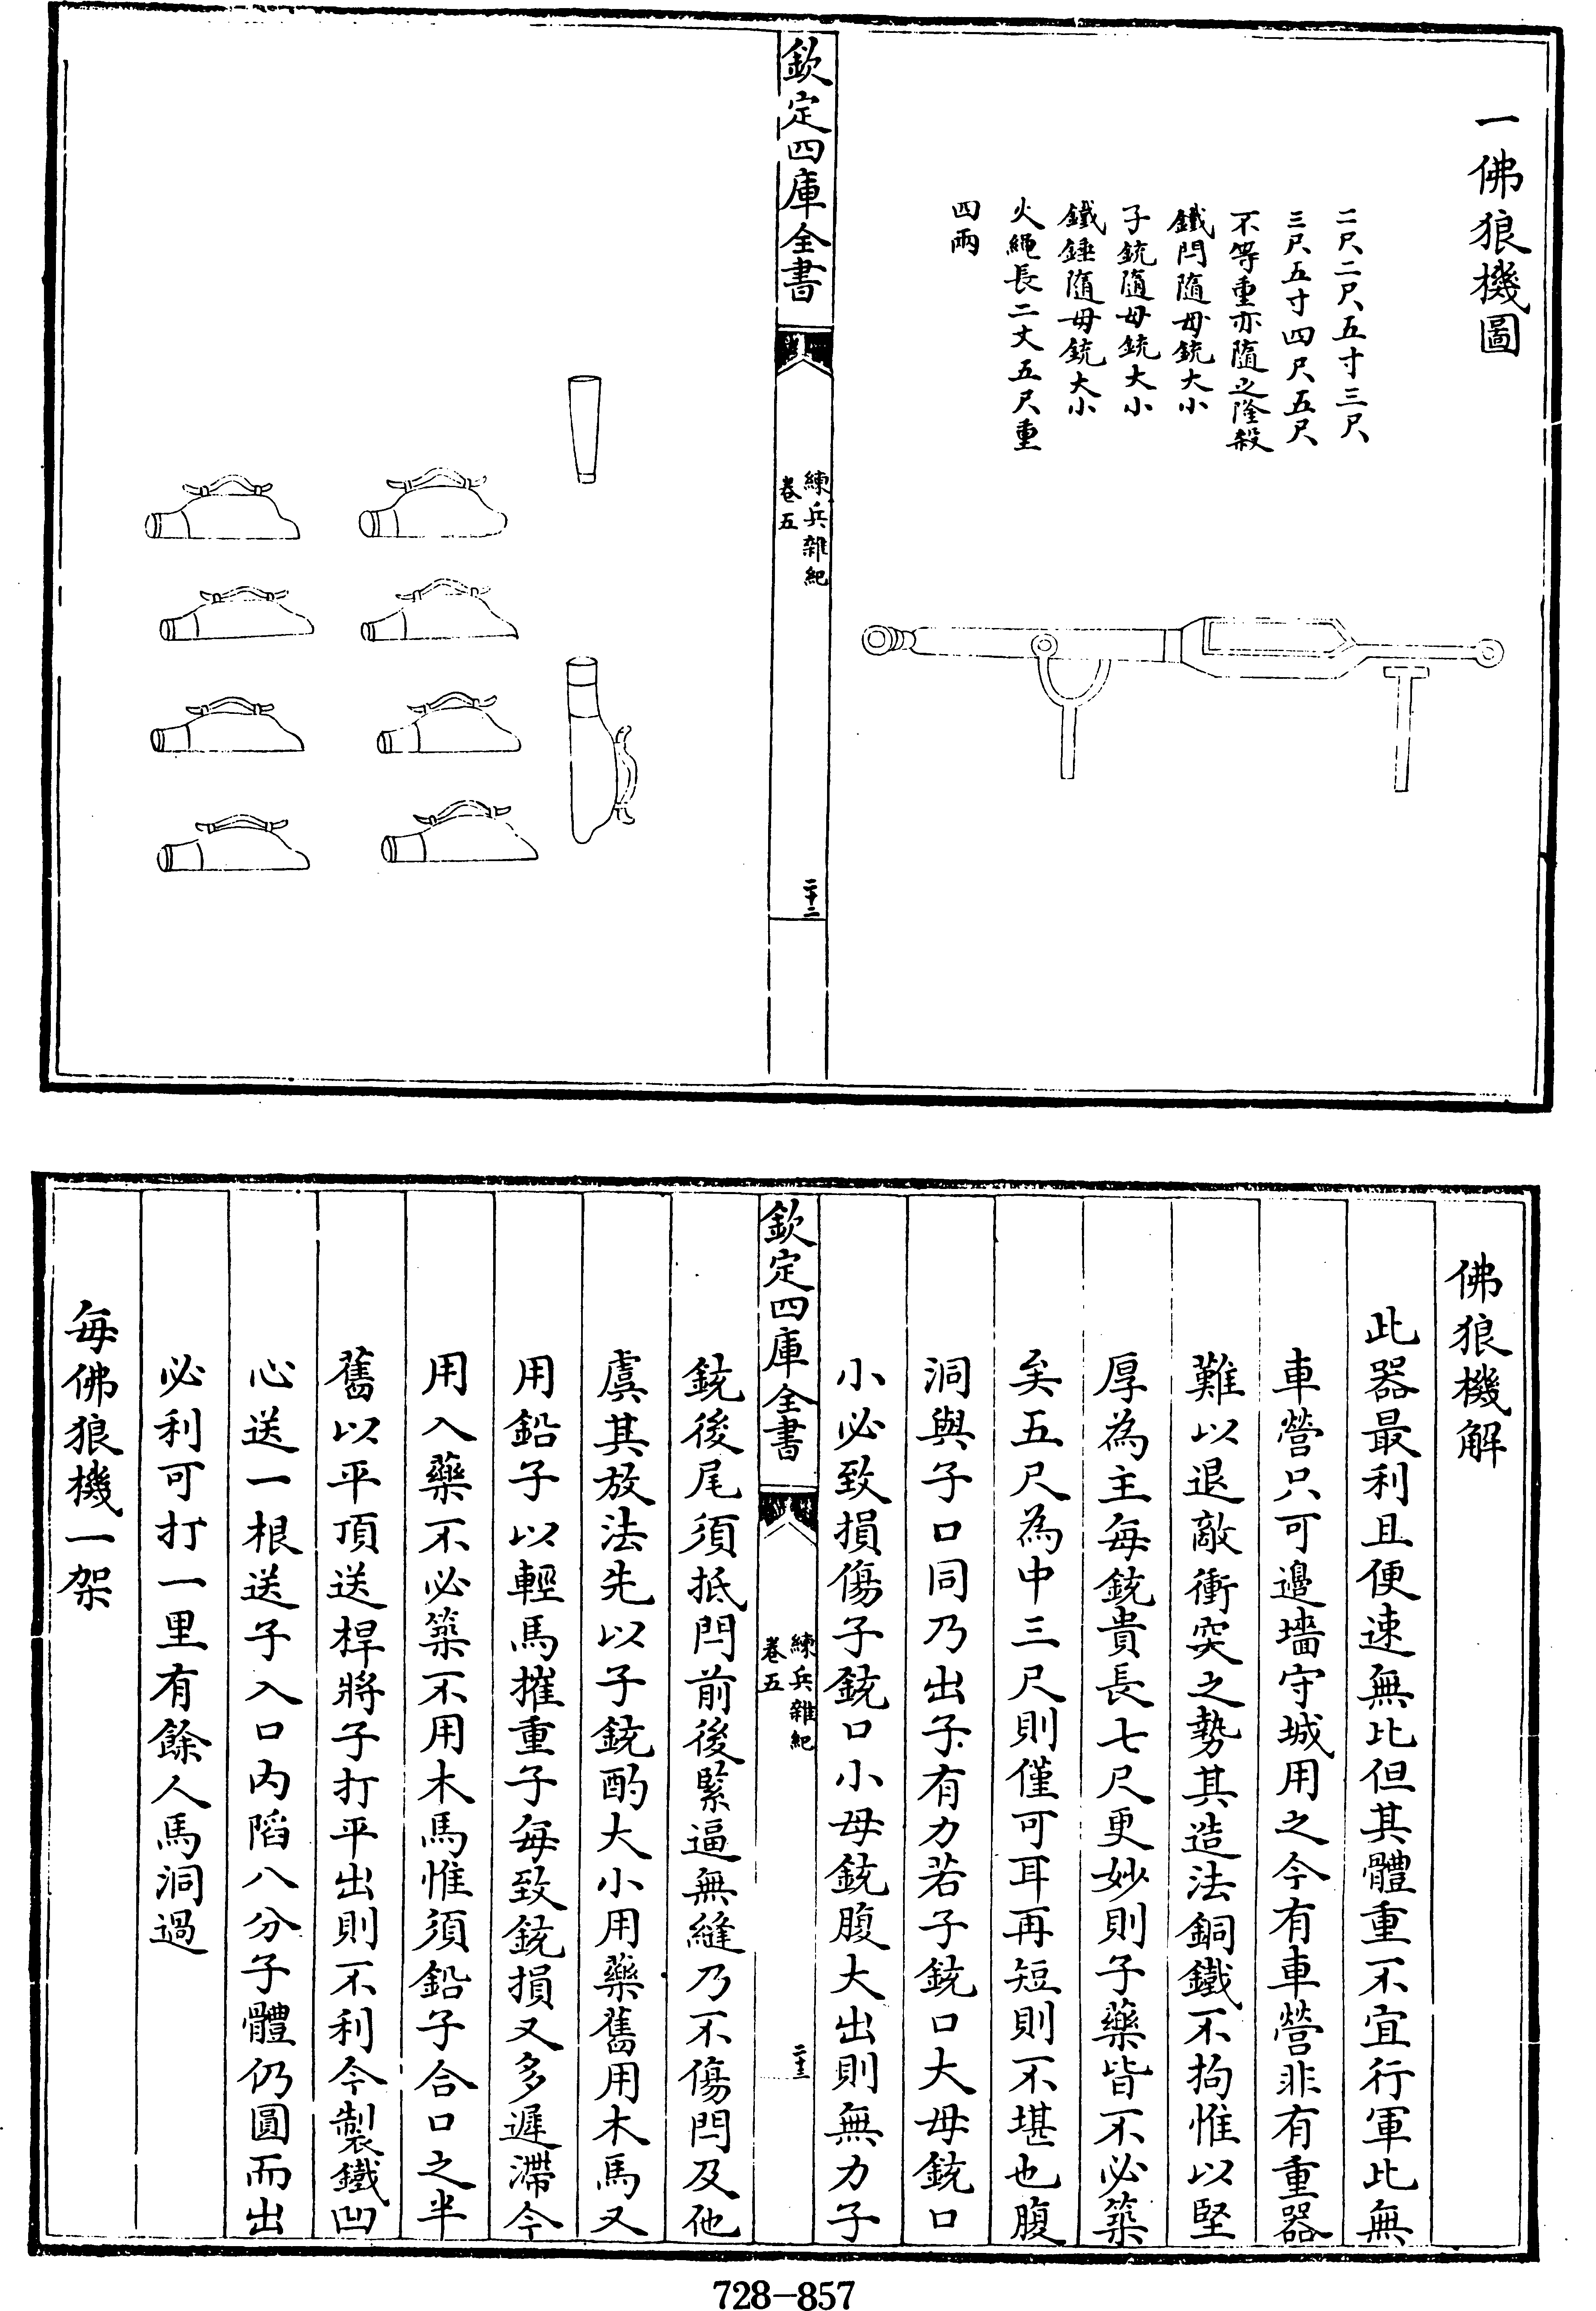 一佛狼機圖
二尺二尺五寸三尺
三尺五寸四尺五尺
不等重亦隨之隆殺
鐵閂隨母銃大小
子銃隨母銃大小
鐵錘隨母銃大小
火繩長二丈五尺重
四兩
欽定四庫全書
練兵雜紀
卷五
二十二
佛狼機解
此器最利且便速無比但其體重不宜行軍比無
車營只可邊墻守城用之今有車營非有重器
難以退敵衝突之勢其造法銅鐵不拘惟以堅
厚為主每銃貴長七尺更妙則子藥皆不必築
矣五尺為中三尺則僅可耳再短則不堪也腹
洞與子口同乃出子有力若子銃口大母銃口
小必致損傷子銃口小母銃腹大出則無力子
欽定四庫全書
練兵雜紀
卷五
二十三
銃後尾須抵閂前後緊逼無縫乃不傷閂及他
虞其放法先以子銃酌大小用藥舊用木馬又
用鉛子以輕馬摧重子每致銃損又多遲滯今
用入藥不必築不用木馬惟須鉛子合口之半
舊以平頂送桿將子打平出則不利今製鐵凹
心送一根送子入口內陷八分子體仍圓而出
必利可打一里有餘人馬洞過
每佛狼機一架
728-857